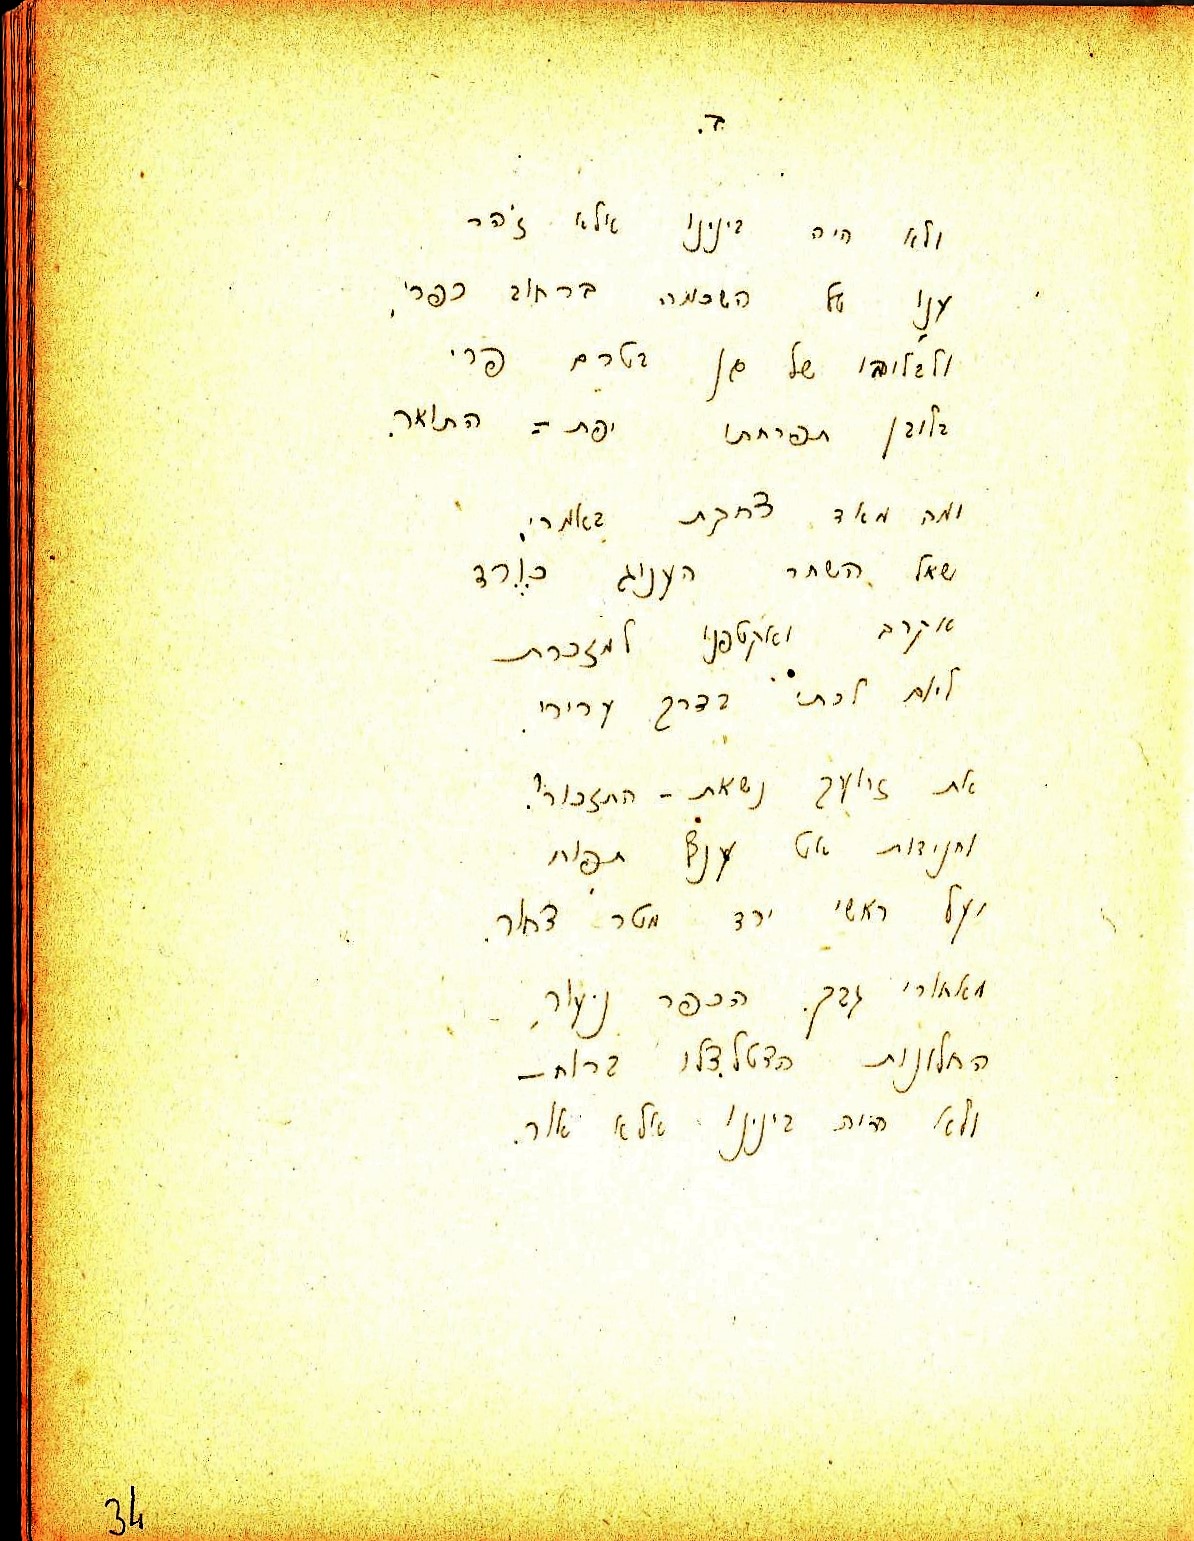 ב.
ולא היה בינינו אלא זֹהר
ענו של השכמה ברחוב כפרי,
ולבלובו של גן בטרם פרי
בלובן תפרחתו יפת = התואר.
ומה מאד צחקת באמרי,
שאל השחר הענוג כורד
אקרב ואקטפנו למזכרת
ליום לכתי בדרך ערירי.
את זרועך נשאת – התזכורי?
וחנידות אט ענף תפוח
ועל ראשי ירד מטר צחור.
מאחורי גבך הכפר ניעור,
החלונות הצטלצלו ברוח –
ולא היה בינינו אלא אור.
34